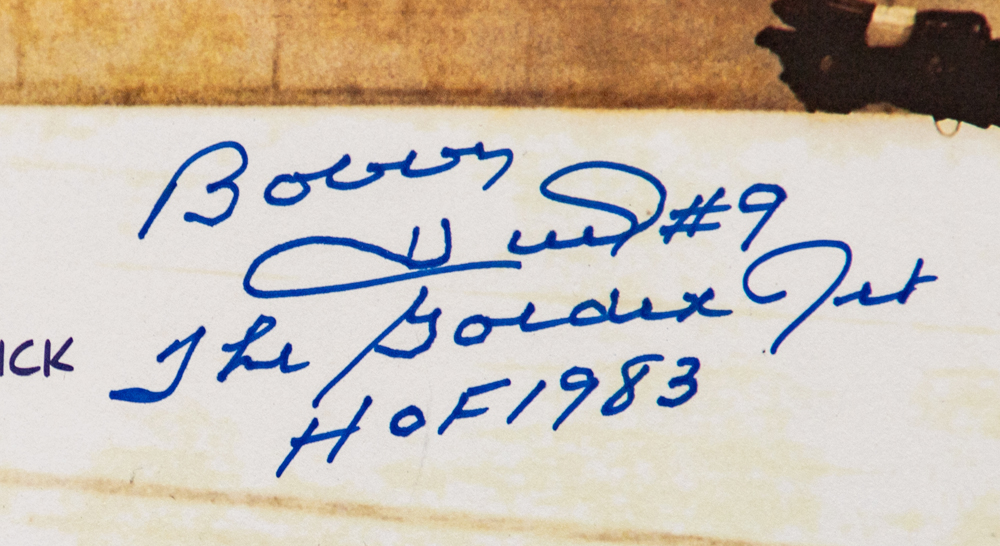 Bobby
Hull #9
The Golden Jet
HOF 1983
ICK